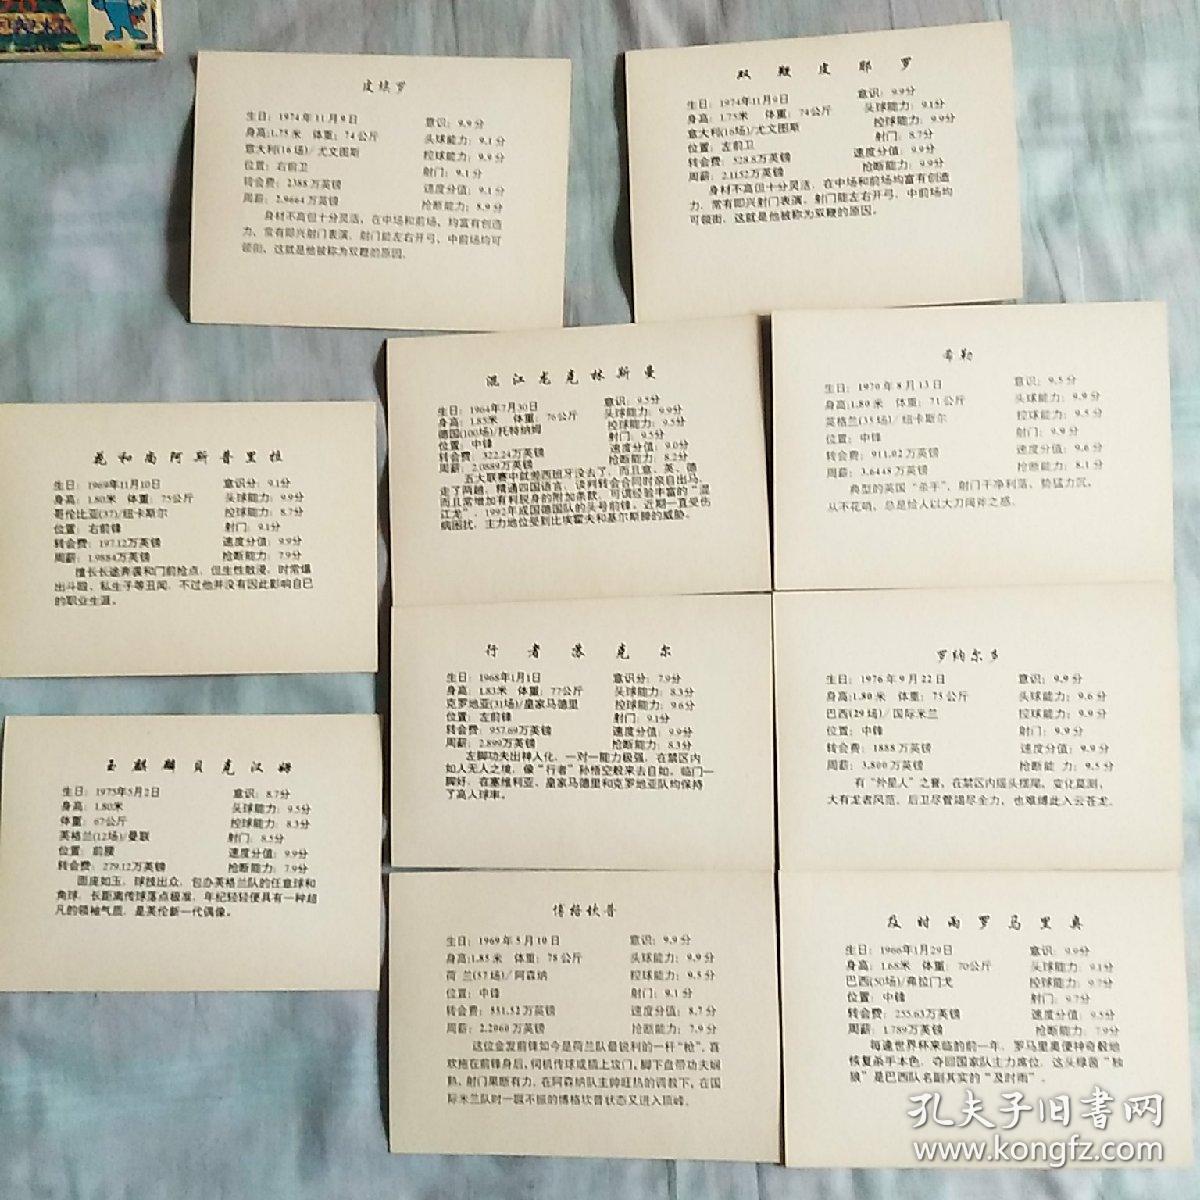 皮埃罗
生日：1974年11月9日 意识：9.9分
身高:1.75米 体重：74公斤 头球能力：9.1分
意大利(16场)/尤文图斯 控球能力：9.9分
位置：右前卫 射门：9.1分
转会费：2388万英镑 速度分值：9.1分
周薪：2.9664万英镑 抢断能力：8.9分
身材不高但十分灵活，在中场和前场，均富有创造
力，常有即兴射门表演，射门能左右开弓、中前场均可
领衔，这就是他被称为双鞭的原因。
双鞭皮耶罗
生日：1974年11月9日 意识：9.9分
身高：1.75米 体重：74公斤 头球能力：9.1分
意大利(16场)/尤文图斯 控球能力：9.9分
位置：左前卫 射门：8.7分
转会费：528.8万英镑 速度分值：9.9分
周薪：2.1152万英镑 抢断能力：9.9分
身材不高但十分灵活，在中场和前场均富有创造
力，常有即兴射门表演，射门能左右开弓，中前场均
可领衔，这就是他被称为双鞭的原因。
混江龙克林斯曼
生日：1964年7月30日 意识：9.5分
身高：1.85米 体重：76公斤 头球能力：9.9分
德国(100场)/托特纳姆 控球能力：9.5分
位置：中锋 射门：9.5分
转会费：522.24万英镑 速度分值：9.0分
周薪：2.0889万英镑 抢断能力：8.2分
五大联赛中就剩西班牙没去了，而且意、英、德
走了两趟，精通四国语言，谈判转会合同时亲自出马，
而且常增加有利脱身的附加条款，可谓经验丰富的“混
江龙”，1992年成国德国队的头号前锋。近期一直受伤
病困扰，主力地位受到比埃霍夫和基尔斯滕的威胁。
希勒
生日：1970年8月13日 意识：9.5分
身高:1.80米 体重：71公斤 头球能力：9.9分
英格兰(35场)/纽卡斯尔 控球能力：9.5分
位置：中锋 射门：9.9分
转会费：911.02万英镑 速度分值：9.6分
周薪：3.6448万英镑 抢断能力：8.1分
典型的英国“杀手”，射门干净利落、势猛力沉，
从不花哨，总是给人以大刀阔斧之感．
花和尚阿斯普里拉
生日：1969年11月10日 意识分：9.1分
身高：1.80米 体重：75公斤 头球能力：9.9分
哥伦比亚(37)/纽卡斯尔 控球能力：8.7分
位置：右前锋 射门：9.1分
转会费：197.12万英镑 速度分值：9.9分
周薪：1.9884万英镑 抢断能力：7.9分
擅长长途奔袭和门前抢点，但生性散漫，时常爆
出斗殴、私生子等丑闻，不过他并没有因此影响自已
的职业生涯。
行者苏克尔
生日：1968年1月1日 意识分：7.9分
身高：1.83米 体重：77公斤 头球能力：8.3分
克罗地亚(31场)/皇家马德里 控球能力：9.6分
位置：左前锋 射门：9.1分
转会费：957.69万英镑 速度分值：9.9分
周薪：2.899万英镑 抢断能力：8.3分
左脚功夫出神入化，一对一能力极强，在禁区内
如人无人之境，像“行者”孙悟空般来去自如，临门一
脚好，在塞维利亚、皇家马德里和克罗地亚队均保持
了高人球率。
罗纳尔多
生日：1976年9月22日 意识：9.9分
身高:1.80米 体重：75公斤 头球能力：9.6分
巴西(29场)/国际米兰 控球能力：9.9分
位置：中锋 射门：9.9分
转会费：1888万英镑 速度分值：9.9分
周薪：3.800万英镑 抢断能力：9.5分
有“外星人”之誉，在禁区内摇头摆尾，变化莫测，
大有龙者风范，后卫尽管竭尽全力，也难缚此入云苍龙．
玉麒麟贝克汉姆
生日：1975年5月2日 意识：8.7分
身高：1.80米 头球能力：9.5分
体重：67公斤 控球能力：8.3分
英格兰(12场)/曼联 射门：8.5分
位置：前腰 速度分值：9.9分
转会费：279.12万英镑 抢断能力：7.9分
面庞如玉，球技出众，包办英格兰队的任意球和
角球，长距离传球落点极准，年纪轻轻便具有一种超
凡的领袖气质，是英伦新一代偶像。
博格坎普
生日：1969年5月10日 意识：9.9分
身高:1.85米 体重：78公斤 头球能力：9.9分
荷兰(57场)/阿森纳 控球能力：9.5分
位置：中锋 射门：9.1分
转会费：551.52万英镑 速度分值：8.7分
周薪：2.2060万英镑 抢断能力：7.9分
这位金发前锋如今是荷兰队最锐利的一杆“枪”，喜
欢拖在前锋身后，伺机传球或插上攻门，脚下盘带功夫娴
熟，射门果断有力，在阿森纳队主帅旺热的调教下，在国
际米兰队时一蹶不振的博格坎普状态又进入巅峰。
及时雨罗马里奥
生日：1966年1月29日 意识：9.9分
身高：1.68米 体重：70公斤 头球能力：9.1分
巴西(50场)/弗拉门戈 控球能力：9.7分
位置：中锋 射门：9.7分
转会费：255.63万英镑 速度分值：9.5分
周薪：1.789万英镑 抢断能力：7.9分
每逢世界杯来临的前一年，罗马里奥便神奇般地
恢复杀手本色，夺回国家队主力席位，这头绿茵“独
狼”是巴西队名副其实的“及时雨”．
孔夫子旧书网
www.kongfz.com